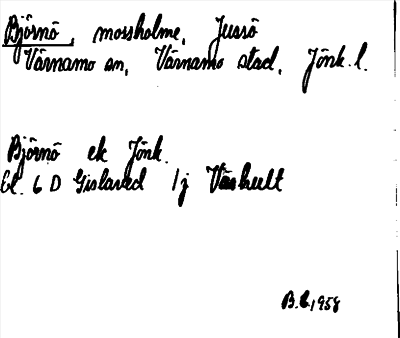 Björnö, mossholme, Jussö
Värnamo sn, Värnamo stad, Jönk. l.
Björnö ek Jönk.
bl. 6 D Gislaved 1j Våshult
B.E. 1958